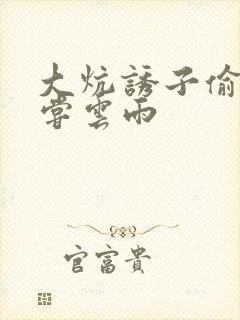 大炕誘子偷
嘗雲雨
官富貴